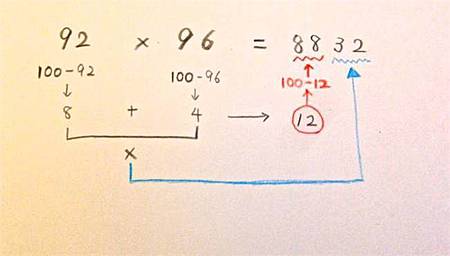 92 × 96 = 8832
100-92 100-96 100-12
↓ ↓ ↑
8 + 4 → 12
×